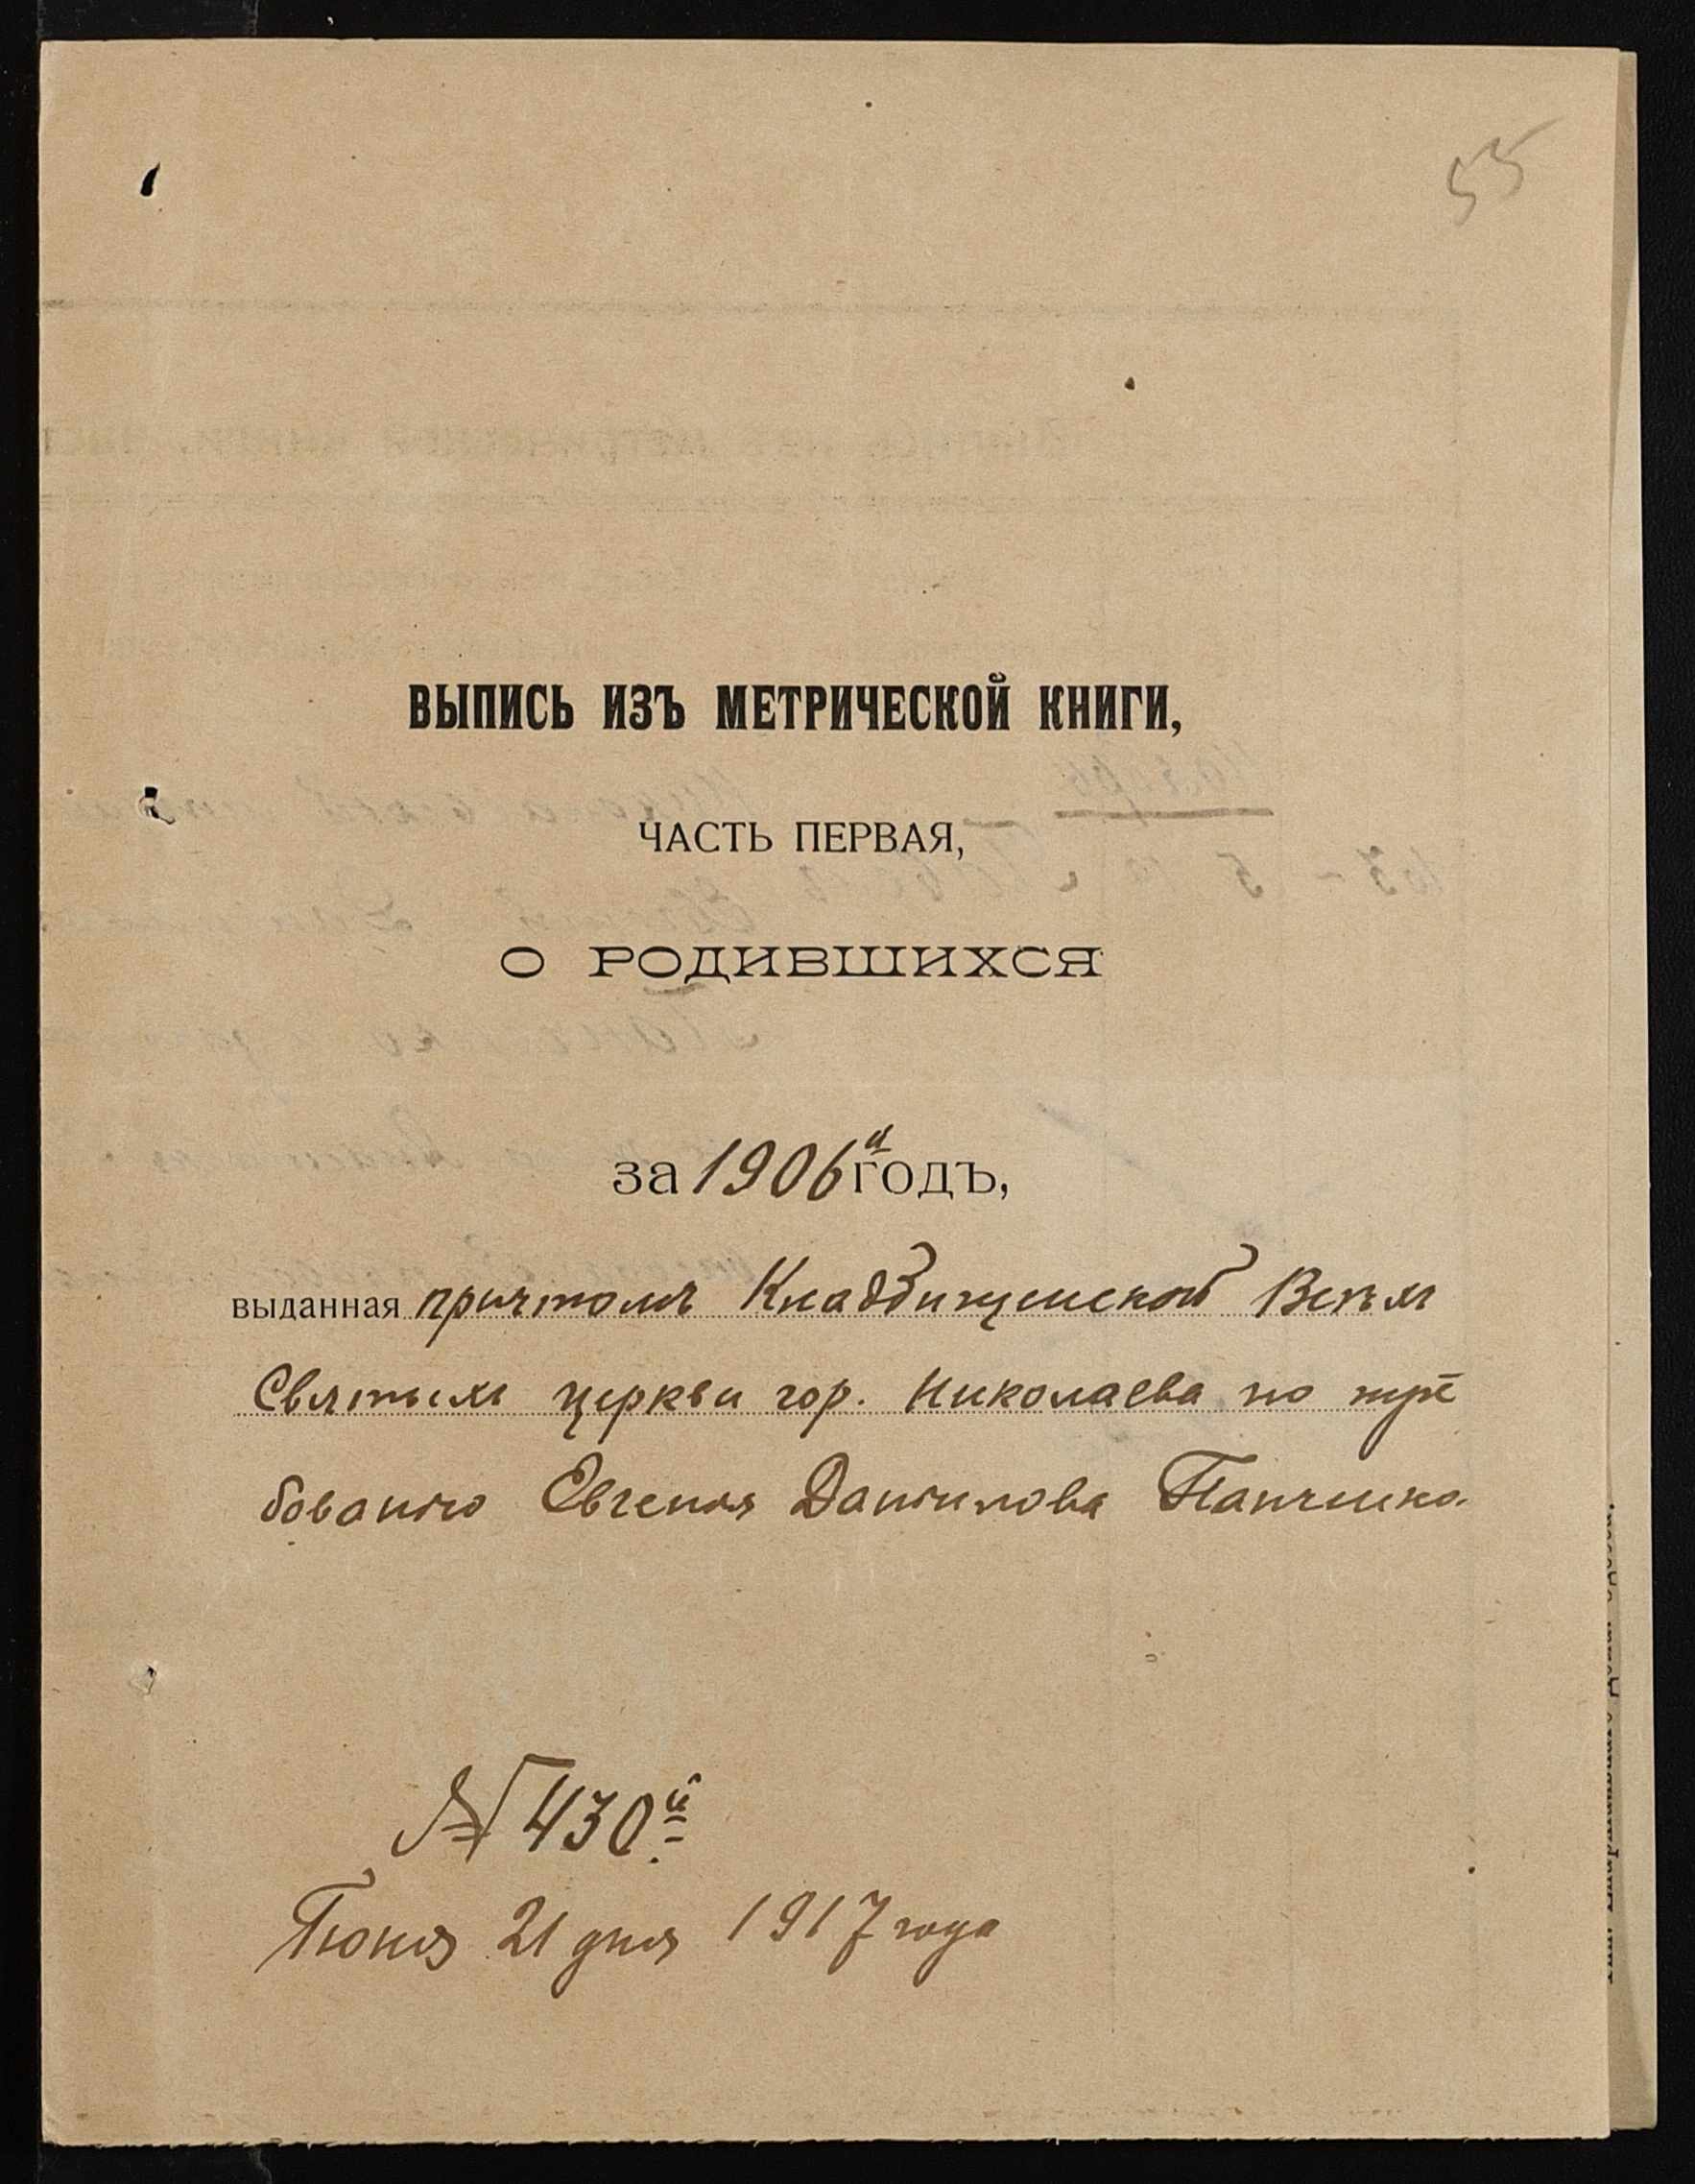 55
ВЫПИСЬ ИЗЪ МЕТРИЧЕСКОЙ КНИГИ,
ЧАСТЬ ПЕРВАЯ,
О РОДИВШИХСЯ
за 1906й годъ,
выданная причтомъ Кладбищенской Всѣхъ
Святыхъ церкви гор. Николаева по тре
бованію Евгенія Даніилова Панченко.
№ 430й
Іюня 21 дня 1917 года